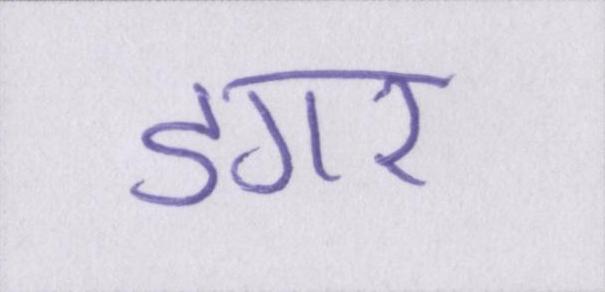 डगर